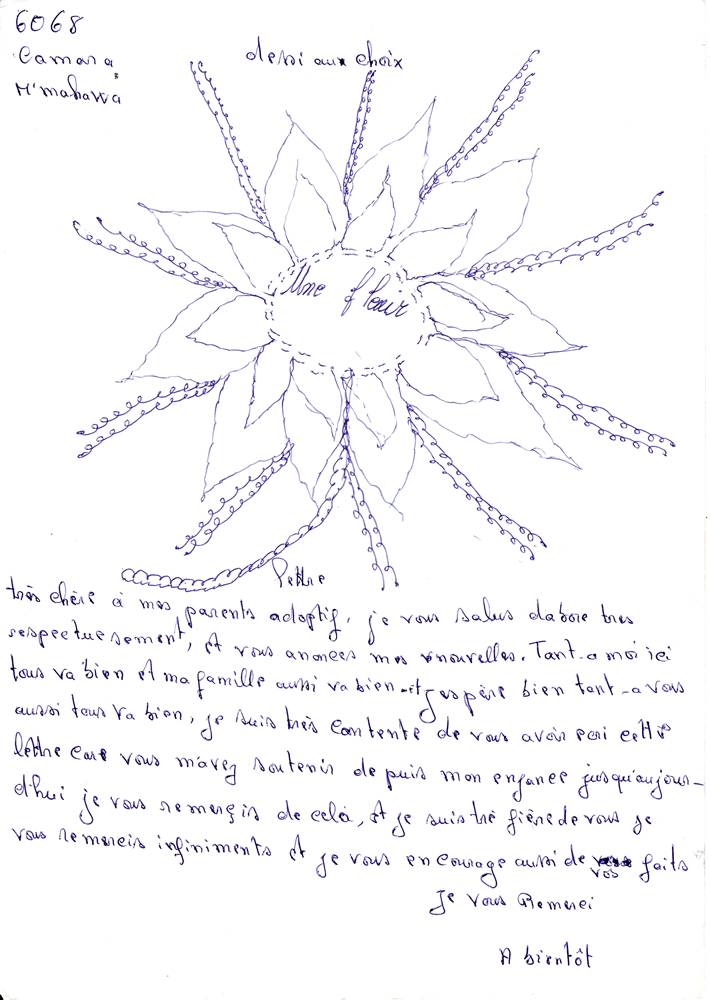 6068
Camara
M'mahawa
dessi aux choix
Une fleur
lettre
très chère à mes parents adoptif, je vous salus dabore tres
respectueusement, et vous anonces mes nouvelles. Tant-a moi ici
tous va bien et ma famille aussi va bien et j'espère bien tant-a vous
aussi tous va bien, je suis très contente de vous avoir ecri cette
lettre care vous m'avez soutenir depuis mon enfance jusqu'aujour-
d'hui je vous remerçis de celà, et je suis trè fière de vous je
vous remercis infiniments et je vous encourage aussi de vos faits
Je vous Remerci
A bientôt